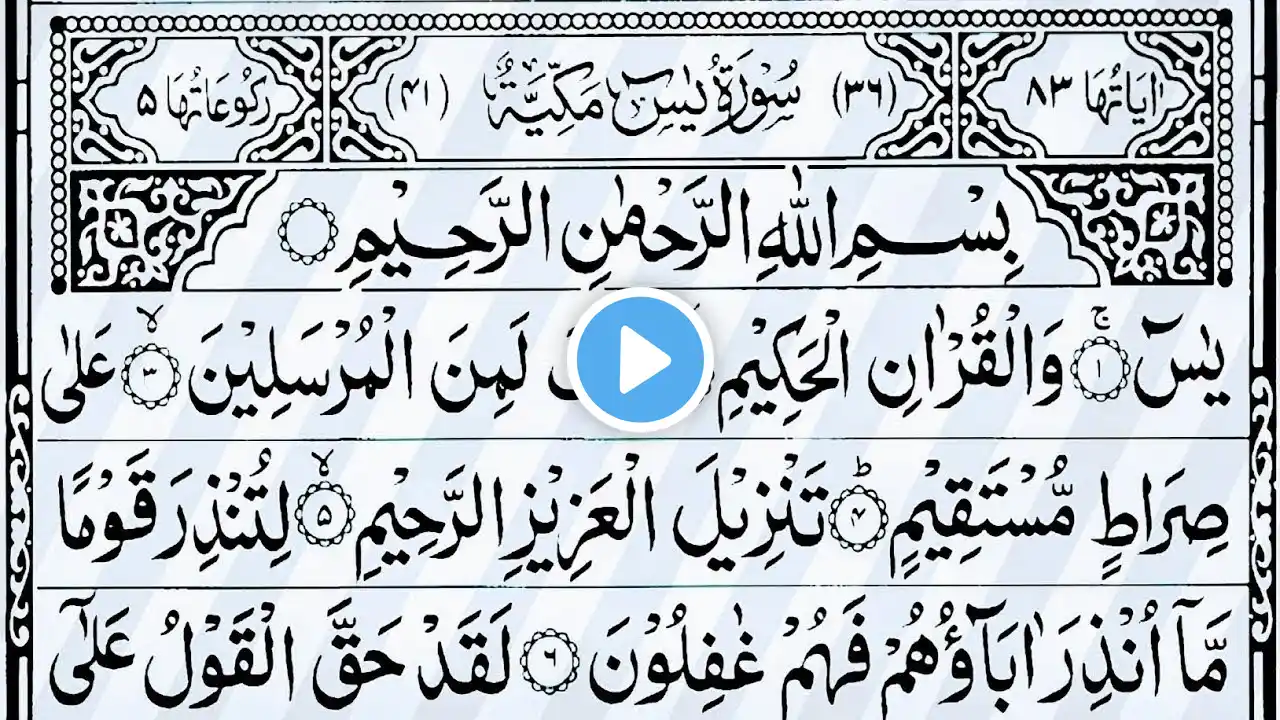 اٰيَاتُهَا ٨٣ (٣٦) سُوْرَةُ يٰسٓ مَكِّيَّةٌ (٤١) رَكُوْعَاتُهَا ٥
بِسْمِ اللّٰهِ الرَّحْمٰنِ الرَّحِيْمِ
يٰسٓ ۚ ١ وَالْقُرْاٰنِ الْحَكِيْمِ لَمِنَ الْمُرْسَلِيْنَ ۙ ٣ عَلٰى
صِرَاطٍ مُّسْتَقِيْمٍ ؕ ۴ تَنْزِيْلَ الْعَزِيْزِ الرَّحِيْمِ ۙ ۵ لِتُنْذِرَ قَوْمًا
مَّآ اُنْذِرَ اٰبَآؤُهُمْ فَهُمْ غٰفِلُوْنَ ٦ لَقَدْ حَقَّ الْقَوْلُ عَلٰٓى